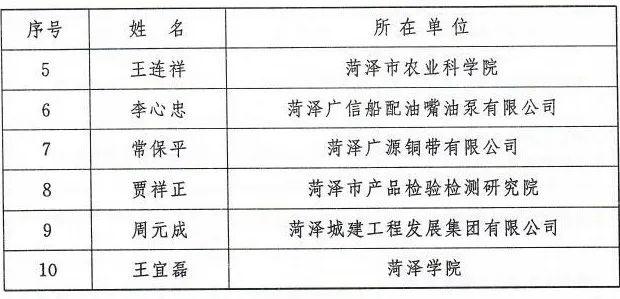 序号 姓 名 所在单位
5 王连祥 菏泽市农业科学院
6 李心忠 菏泽广信船配油嘴油泵有限公司
7 常保平 菏泽广源铜带有限公司
8 贾祥正 菏泽市产品检验检测研究院
9 周元成 菏泽城建工程发展集团有限公司
10 王宜磊 菏泽学院